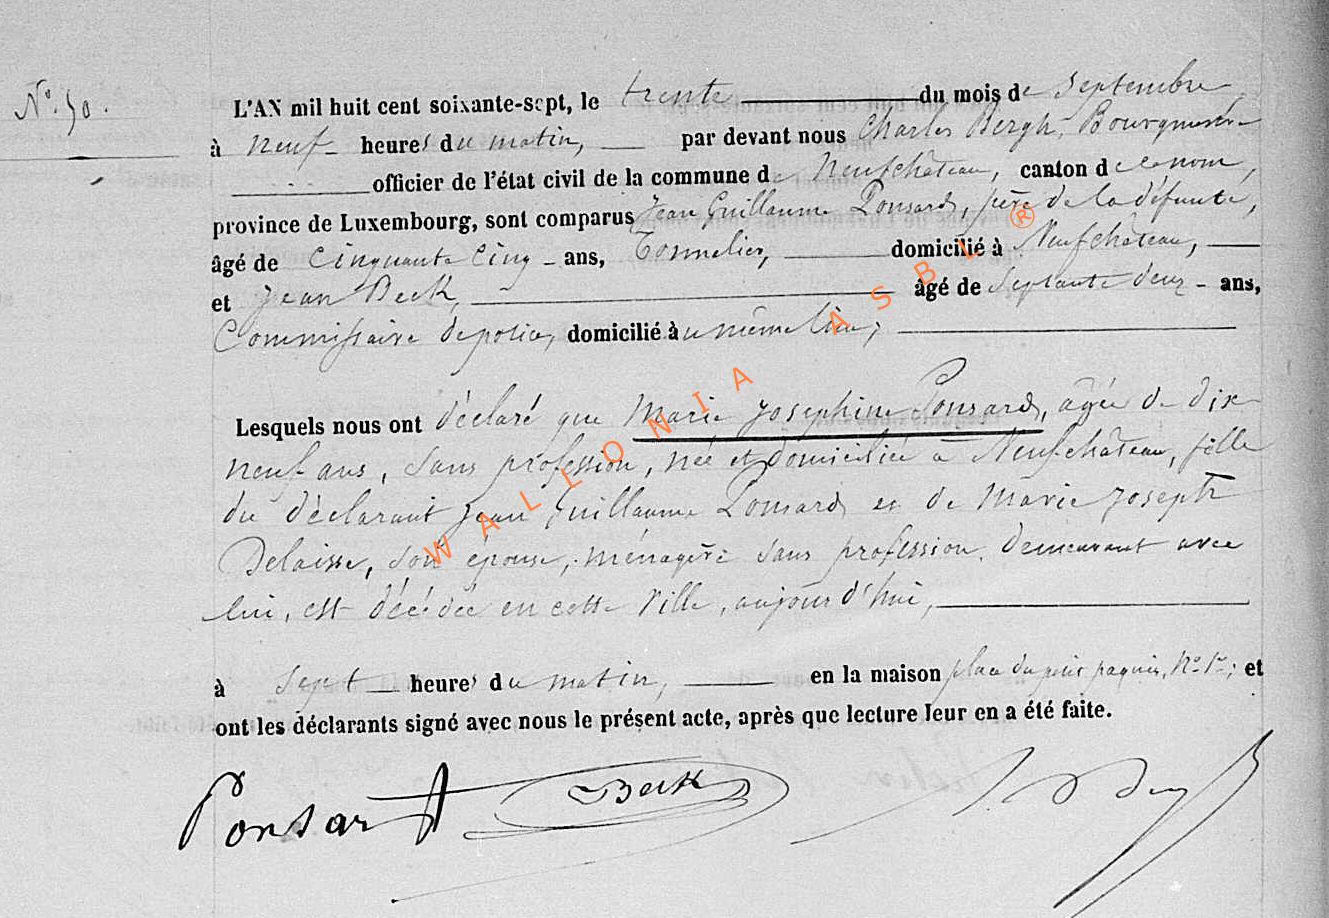 N° 50.
L'AN mil huit cent soixante-sept, le trente du mois de Septembre,
à neuf heures du matin, par devant nous Charles Bergh, Bourgmestre
officier de l'état civil de la commune de Neufchâteau, canton de ce nom,
province de Luxembourg, sont comparus Jean Guillaume Ponsard, père de la défunte,
âgé de Cinquante Cinq ans, Tonnelier, domicilié à Neufchâteau,
et Jean Beck, âgé de Septante deux ans,
Commissaire de police, domicilié au même lieu;
Lesquels nous ont déclaré que Marie Josephine Ponsard, agée de dix
neuf ans, sans profession, née et domiciliée à Neufchâteau, fille
du déclarant Jean Guillaume Ponsard et de Marie Joseph
Delaisse, son épouse, ménagère sans profession, demeurant avec
lui, est décédée en cette Ville, aujourd'hui,
à Sept heures du matin, en la maison place du petit paquis, N° 1er; et
ont les déclarants signé avec nous le présent acte, après que lecture leur en a été faite.
Ponsard Beck
WALLONIA ASBL ®